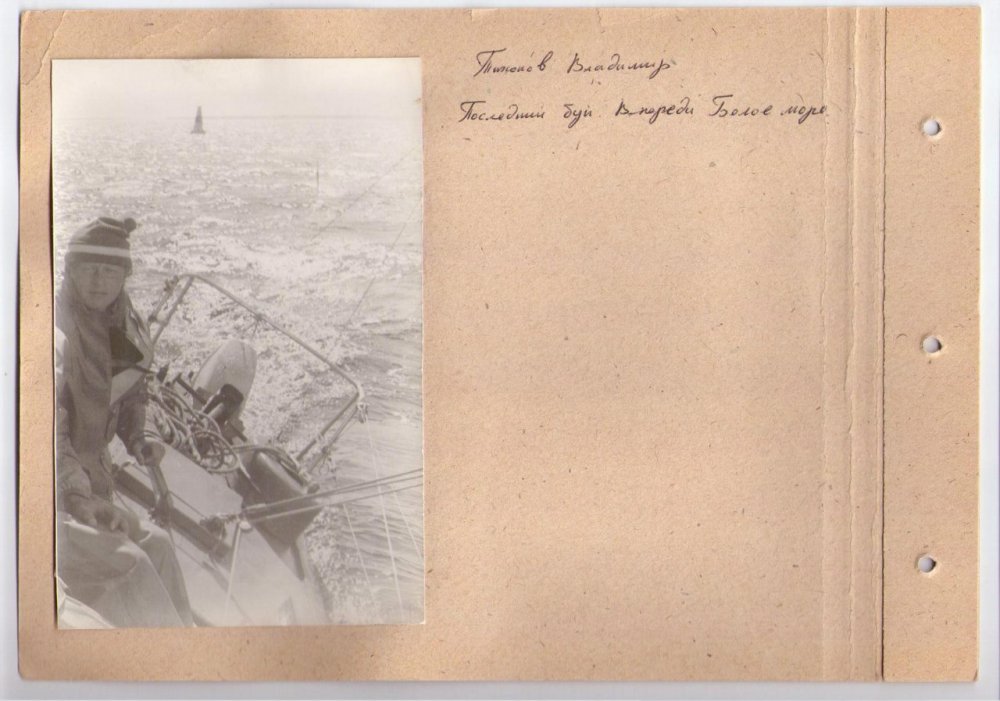 Тихонов Владимир
Последний буй. Впереди Белое море.